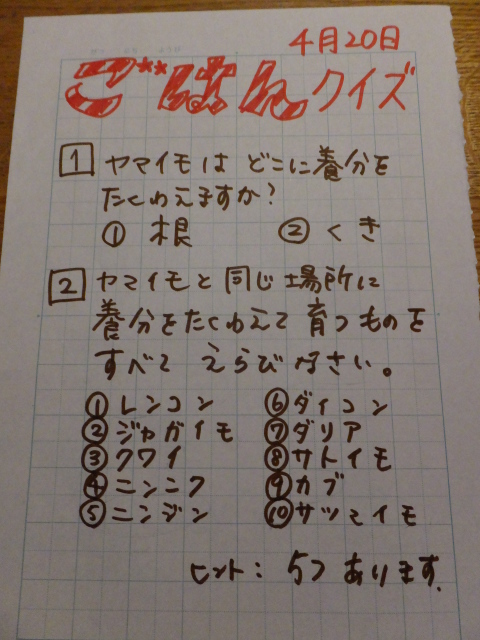 4月20日
ごはんクイズ
1 ヤマイモは どこに養分を
たくわえますか？
① 根 ② くき
2 ヤマイモと 同じ場所に
養分をたくわえて 育つものを
すべて えらびなさい。
① レンコン ⑥ ダイコン
② ジャガイモ ⑦ ダリア
③ クワイ ⑧ サトイモ
④ ニンニク ⑨ カブ
⑤ ニンジン ⑩ サツマイモ
ヒント： 5つ あります.